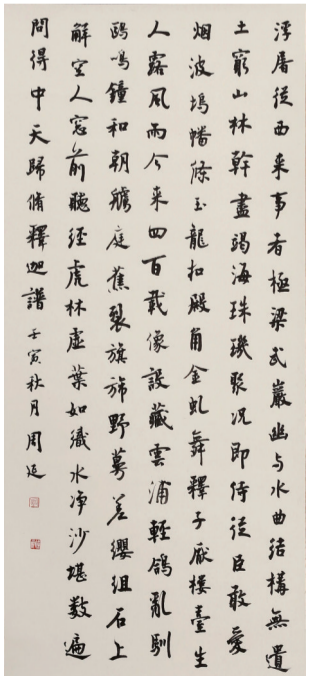 浮屠從西来事者極梁武巖幽与水曲結構無遺
土窮山林幹盡竭海珠璣聚况即侍從臣敢愛
烟波塢幡條玉龍扣殿角金虬舞釋子厭樓臺生
人露風雨今来四百載像設藏雲浦輕鴿亂馴
鷗鳴鐘和朝艣庭蕉裂旗旆野蔓差纓組石上
解空人窓前聽經虎林虛葉如織水净沙堪數遍
問得中天歸脩釋迦譜 壬寅秋月周